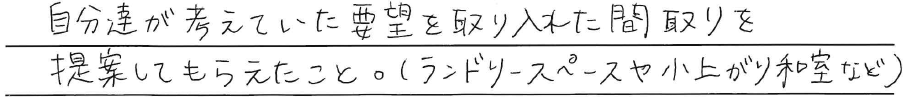 自分達が考えていた要望を取り入れた間取りを
提案してもらえたこと。(ランドリースペースや小上がり和室など)